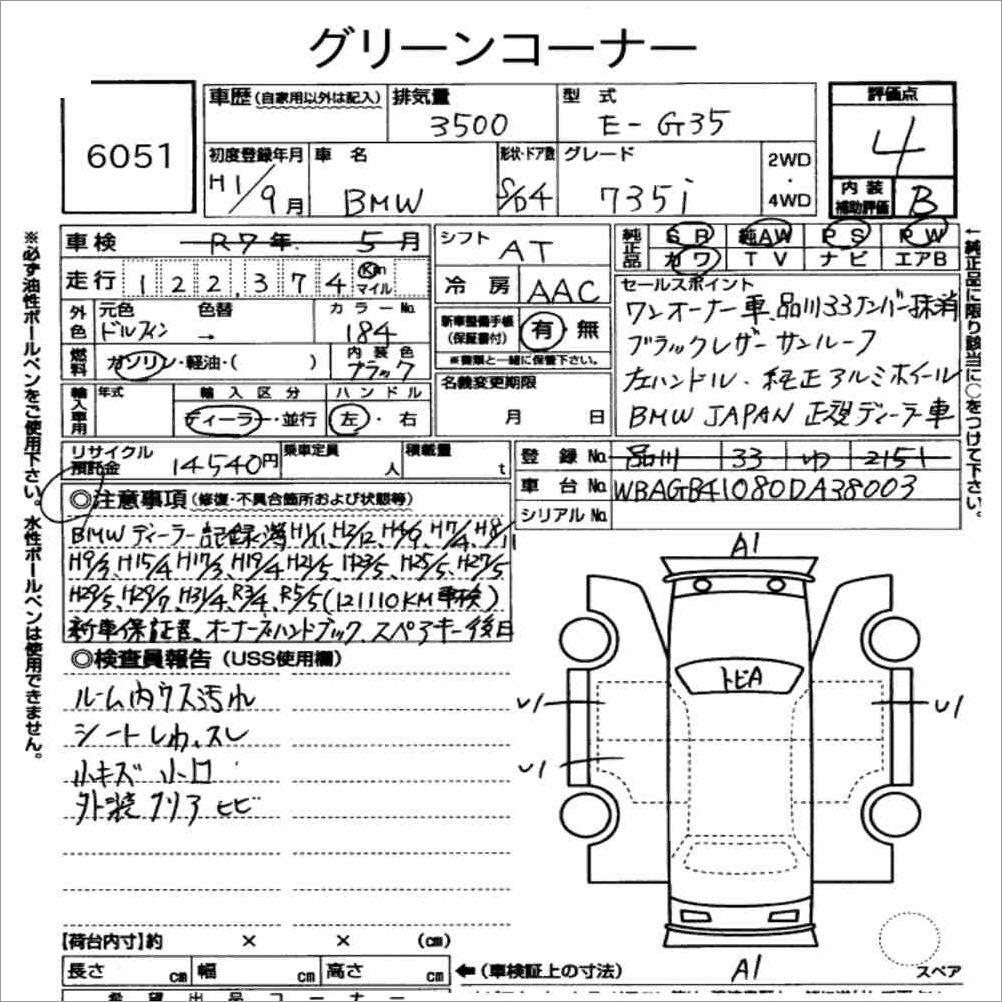 グリーンコーナー
6051
車歴(自家用以外は記入)
排気量
3500
型 式
E-G35
評価点
4
初度登録年月
H1/9月
車 名
BMW
形状・ドア数
S/D4
グレード
735i
2WD
・
4WD
内 装
補助評価
B
※必ず油性ボールペンをご使用下さい。水性ボールペンは使用できません。
車検
R7年 5月
シフト
AT
純正品
SR 純AW PS PW
カワ TV ナビ エアB
走行
122,374
Km
マイル
冷 房
AAC
セールスポイント
ワンオーナー車、品川33ナンバー抹消
ブラックレザー サンルーフ
左ハンドル・純正アルミホイール
BMW JAPAN 正規ディーラー車
外色
元色
色替
ドルフィン →
カラーNo.
184
新車整備手帳
(保証書付)
有・無
※書類と一緒に保管下さい。
燃料
ガソリン・軽油・( )
内 装 色
ブラック
輸入車用
年式
輸 入 区 分
ディーラー・並行
ハ ン ド ル
左・右
名義変更期限
月 日
↑純正品に限り該当に○をつけて下さい。
リサイクル
預託金
14540円
乗車定員
人
積載量
t
登 録 No.
品川 33 ゆ 2151
車 台 No.
WBAGB41080DA38003
シリアルNo.
◎注意事項(修復・不具合箇所および状態等)
BMWディーラー記録簿 H1/11、H2/12、H4/9、H7/4、H8/11
H9/3、H15/4、H17/3、H19/4、H21/5、H23/5、H25/5、H27/5
H29/5、H29/7、H31/4、R3/4、R5/5(121110KM車検)
新車保証書、オーナーズハンドブック、スペアキー後日
◎検査員報告(USS使用欄)
ルーム内ウス汚れ
シートしわ、スレ
小キズ 小凹
外装クリアヒビ
A1
トビA
U1
U1
U1
A1
スペア
【荷台内寸】約 × × (㎝)
長さ ㎝ 幅 ㎝ 高さ ㎝
←(車検証上の寸法)
希 望 出 品 コ ー ナ ー